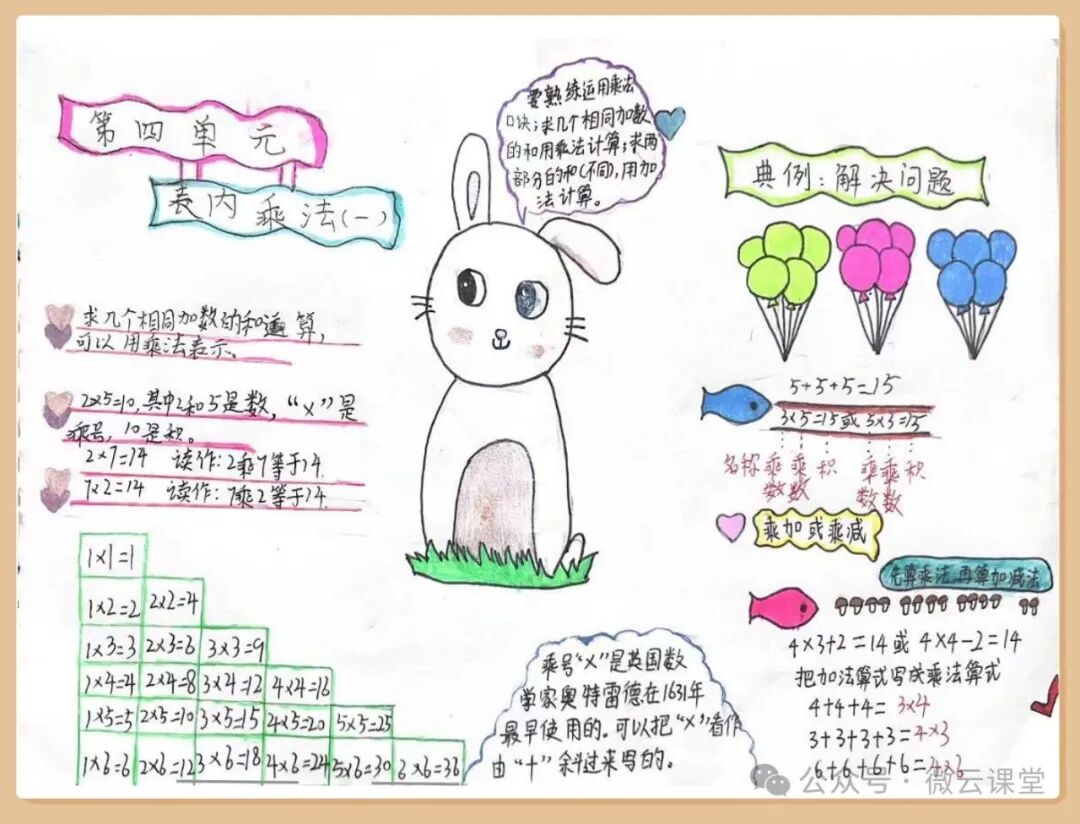 第四单元
表内乘法(一)
要熟练运用乘法
口决;求几个相同加数
的和用乘法计算;求两
部分的和(不同),用加
法计算。
典例:解决问题
求几个相同加数的和遍算,
可以用乘法表示。
2×5=10,其中2和5是数,“×”是
乘号,10是积。
2×7=14 读作:2乘7等于14.
7×2=14 读作:7乘2等于14.
5+5+5=15
3×5=15或5×3=15
名称 乘 乘 积 乘 乘 积
数 数 数 数
乘加或乘减
先算乘法,再算加减法
4×3+2=14或 4×4-2=14
把加法算式写成乘法算式
4+4+4= 3×4
3+3+3+3=4×3
6+6+6+6=4×6
1×1=1
1×2=2 2×2=4
1×3=3 2×3=6 3×3=9
1×4=4 2×4=8 3×4=12 4×4=16
1×5=5 2×5=10 3×5=15 4×5=20 5×5=25
1×6=6 2×6=12 3×6=18 4×6=24 5×6=30 6×6=36
乘号“×”是英国数
学家奥特雷德在1631年
最早使用的。可以把“×”看作
由“+”斜过来写的。
公众号·微云课堂